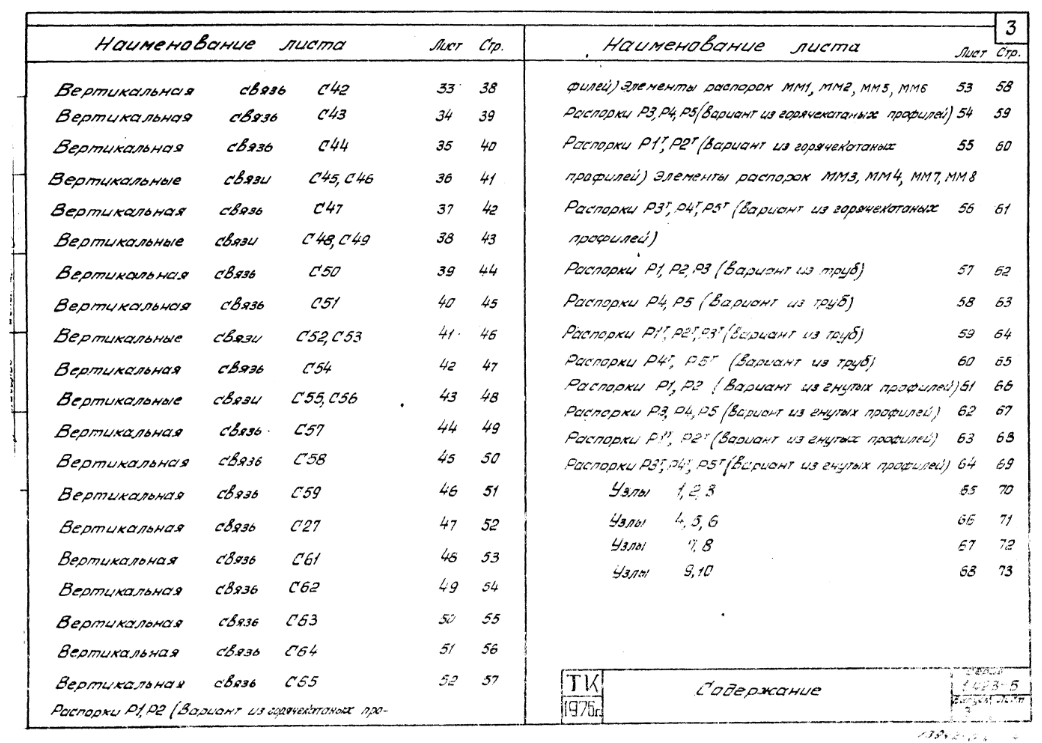 3
Наименование листа Лист Стр.
Вертикальная связь С42 33 38
Вертикальная связь С43 34 39
Вертикальная связь С44 35 40
Вертикальные связи С45, С46 36 41
Вертикальная связь С47 37 42
Вертикальные связи С48, С49 38 43
Вертикальная связь С50 39 44
Вертикальная связь С51 40 45
Вертикальные связи С52, С53 41 46
Вертикальная связь С54 42 47
Вертикальные связи С55, С56 43 48
Вертикальная связь С57 44 49
Вертикальная связь С58 45 50
Вертикальная связь С59 46 51
Вертикальная связь С27 47 52
Вертикальная связь С61 48 53
Вертикальная связь С62 49 54
Вертикальная связь С63 50 55
Вертикальная связь С64 51 56
Вертикальная связь С65 52 57
Распорки Р1, Р2 (Вариант из горячекатаных про-
Наименование листа Лист Стр.
филей) Элементы распорок ММ1, ММ2, ММ5, ММ6 53 58
Распорки Р3, Р4, Р5 (Вариант из горячекатаных профилей) 54 59
Распорки Р1ᵀ, Р2ᵀ (Вариант из горячекатаных 55 60
профилей) Элементы распорок ММ3, ММ4, ММ7, ММ8
Распорки Р3ᵀ, Р4ᵀ, Р5ᵀ (Вариант из горячекатаных 56 61
профилей)
Распорки Р1, Р2, Р3 (Вариант из труб) 57 62
Распорки Р4, Р5 (Вариант из труб) 58 63
Распорки Р1ᵀ, Р2ᵀ, Р3ᵀ (Вариант из труб) 59 64
Распорки Р4ᵀ, Р5ᵀ (Вариант из труб) 60 65
Распорки Р1, Р2 (Вариант из гнутых профилей) 61 66
Распорки Р3, Р4, Р5 (Вариант из гнутых профилей) 62 67
Распорки Р1ᵀ, Р2ᵀ (Вариант из гнутых профилей) 63 68
Распорки Р3ᵀ, Р4ᵀ, Р5ᵀ (Вариант из гнутых профилей) 64 69
Узлы 1, 2, 3 65 70
Узлы 4, 5, 6 66 71
Узлы 7, 8 67 72
Узлы 9, 10 68 73
ТК
1975г.
Содержание
Серия
1.423-5
Выпуск Лист